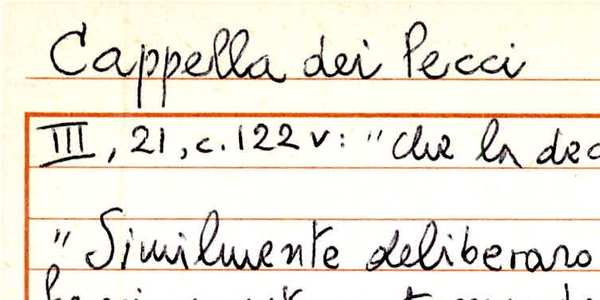 Cappella dei Pecci
III, 21, c. 122 v: "che la dec
"Similmente deliberaro